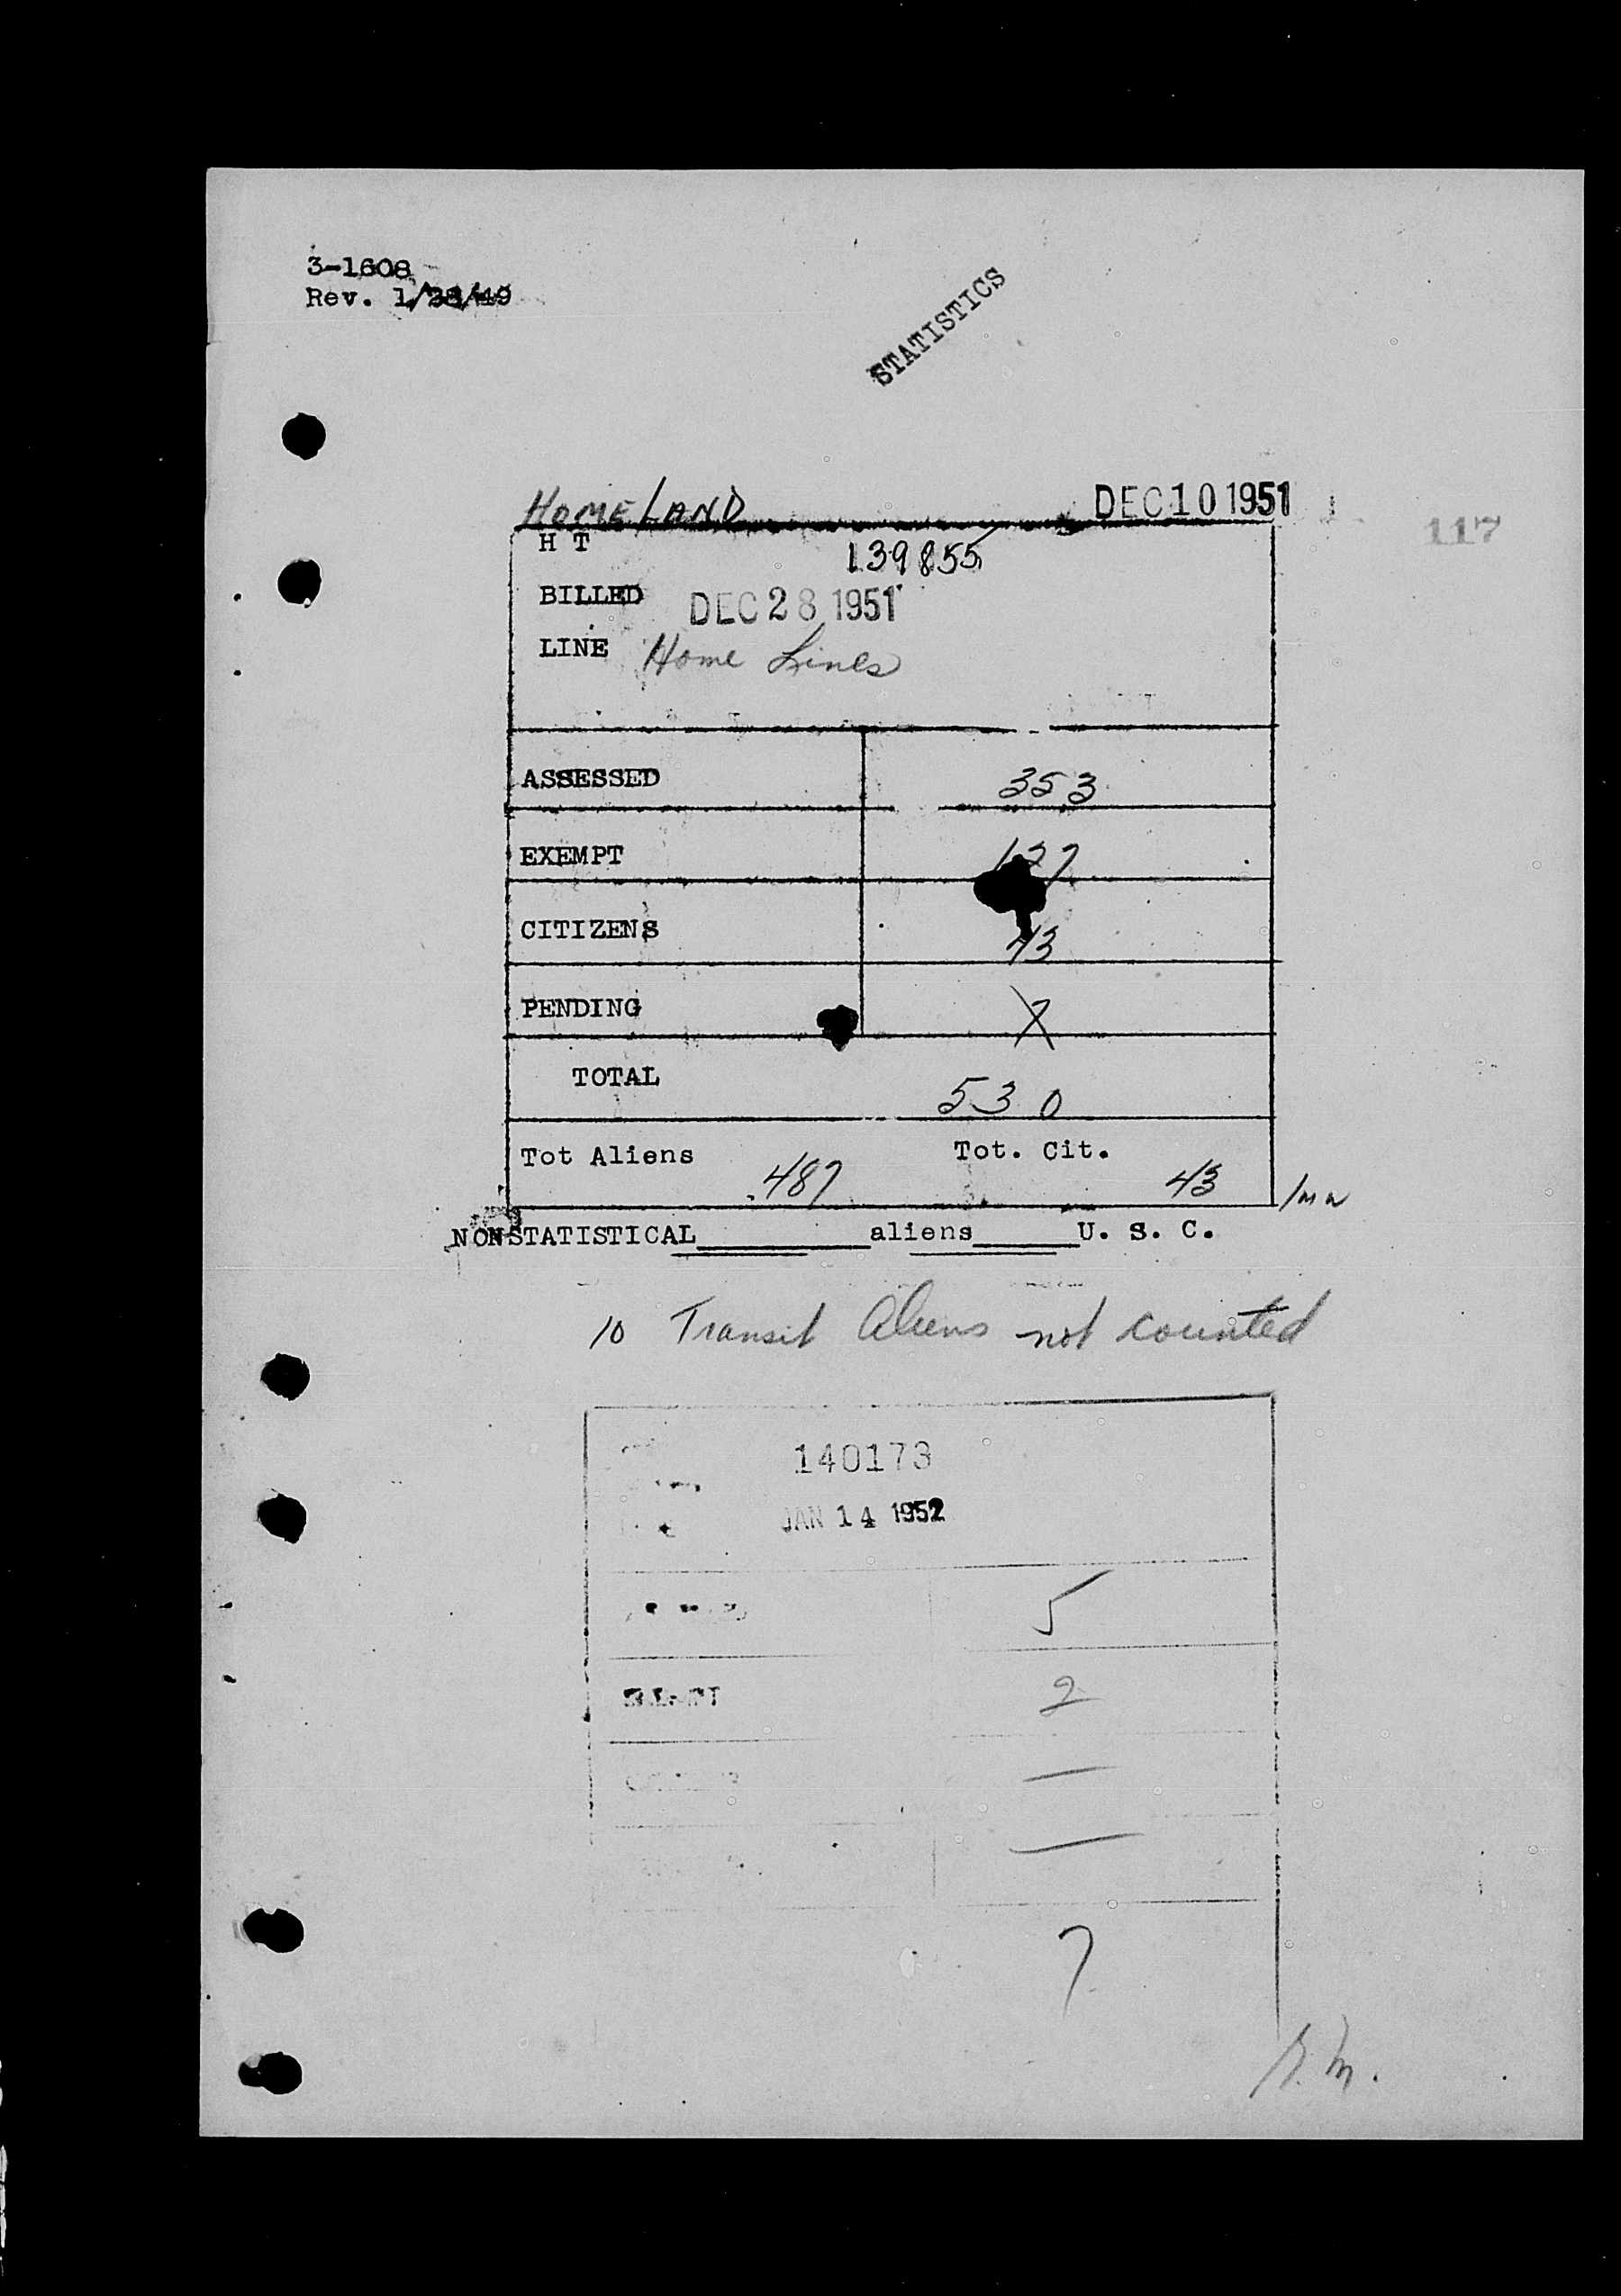 3-1608
Rev. 1/28/49
STATISTICS
HOMELAND DEC 10 1951
117
H T 139855
BILLED DEC 28 1951
LINE Home Lines
ASSESSED 353
EXEMPT 127
CITIZENS 43
PENDING 7
TOTAL 530
Tot Aliens 487 Tot. Cit. 43
NONSTATISTICAL aliens U. S. C.
10 Transit Aliens not counted
140173
JAN 14 1952
5
2
—
—
7